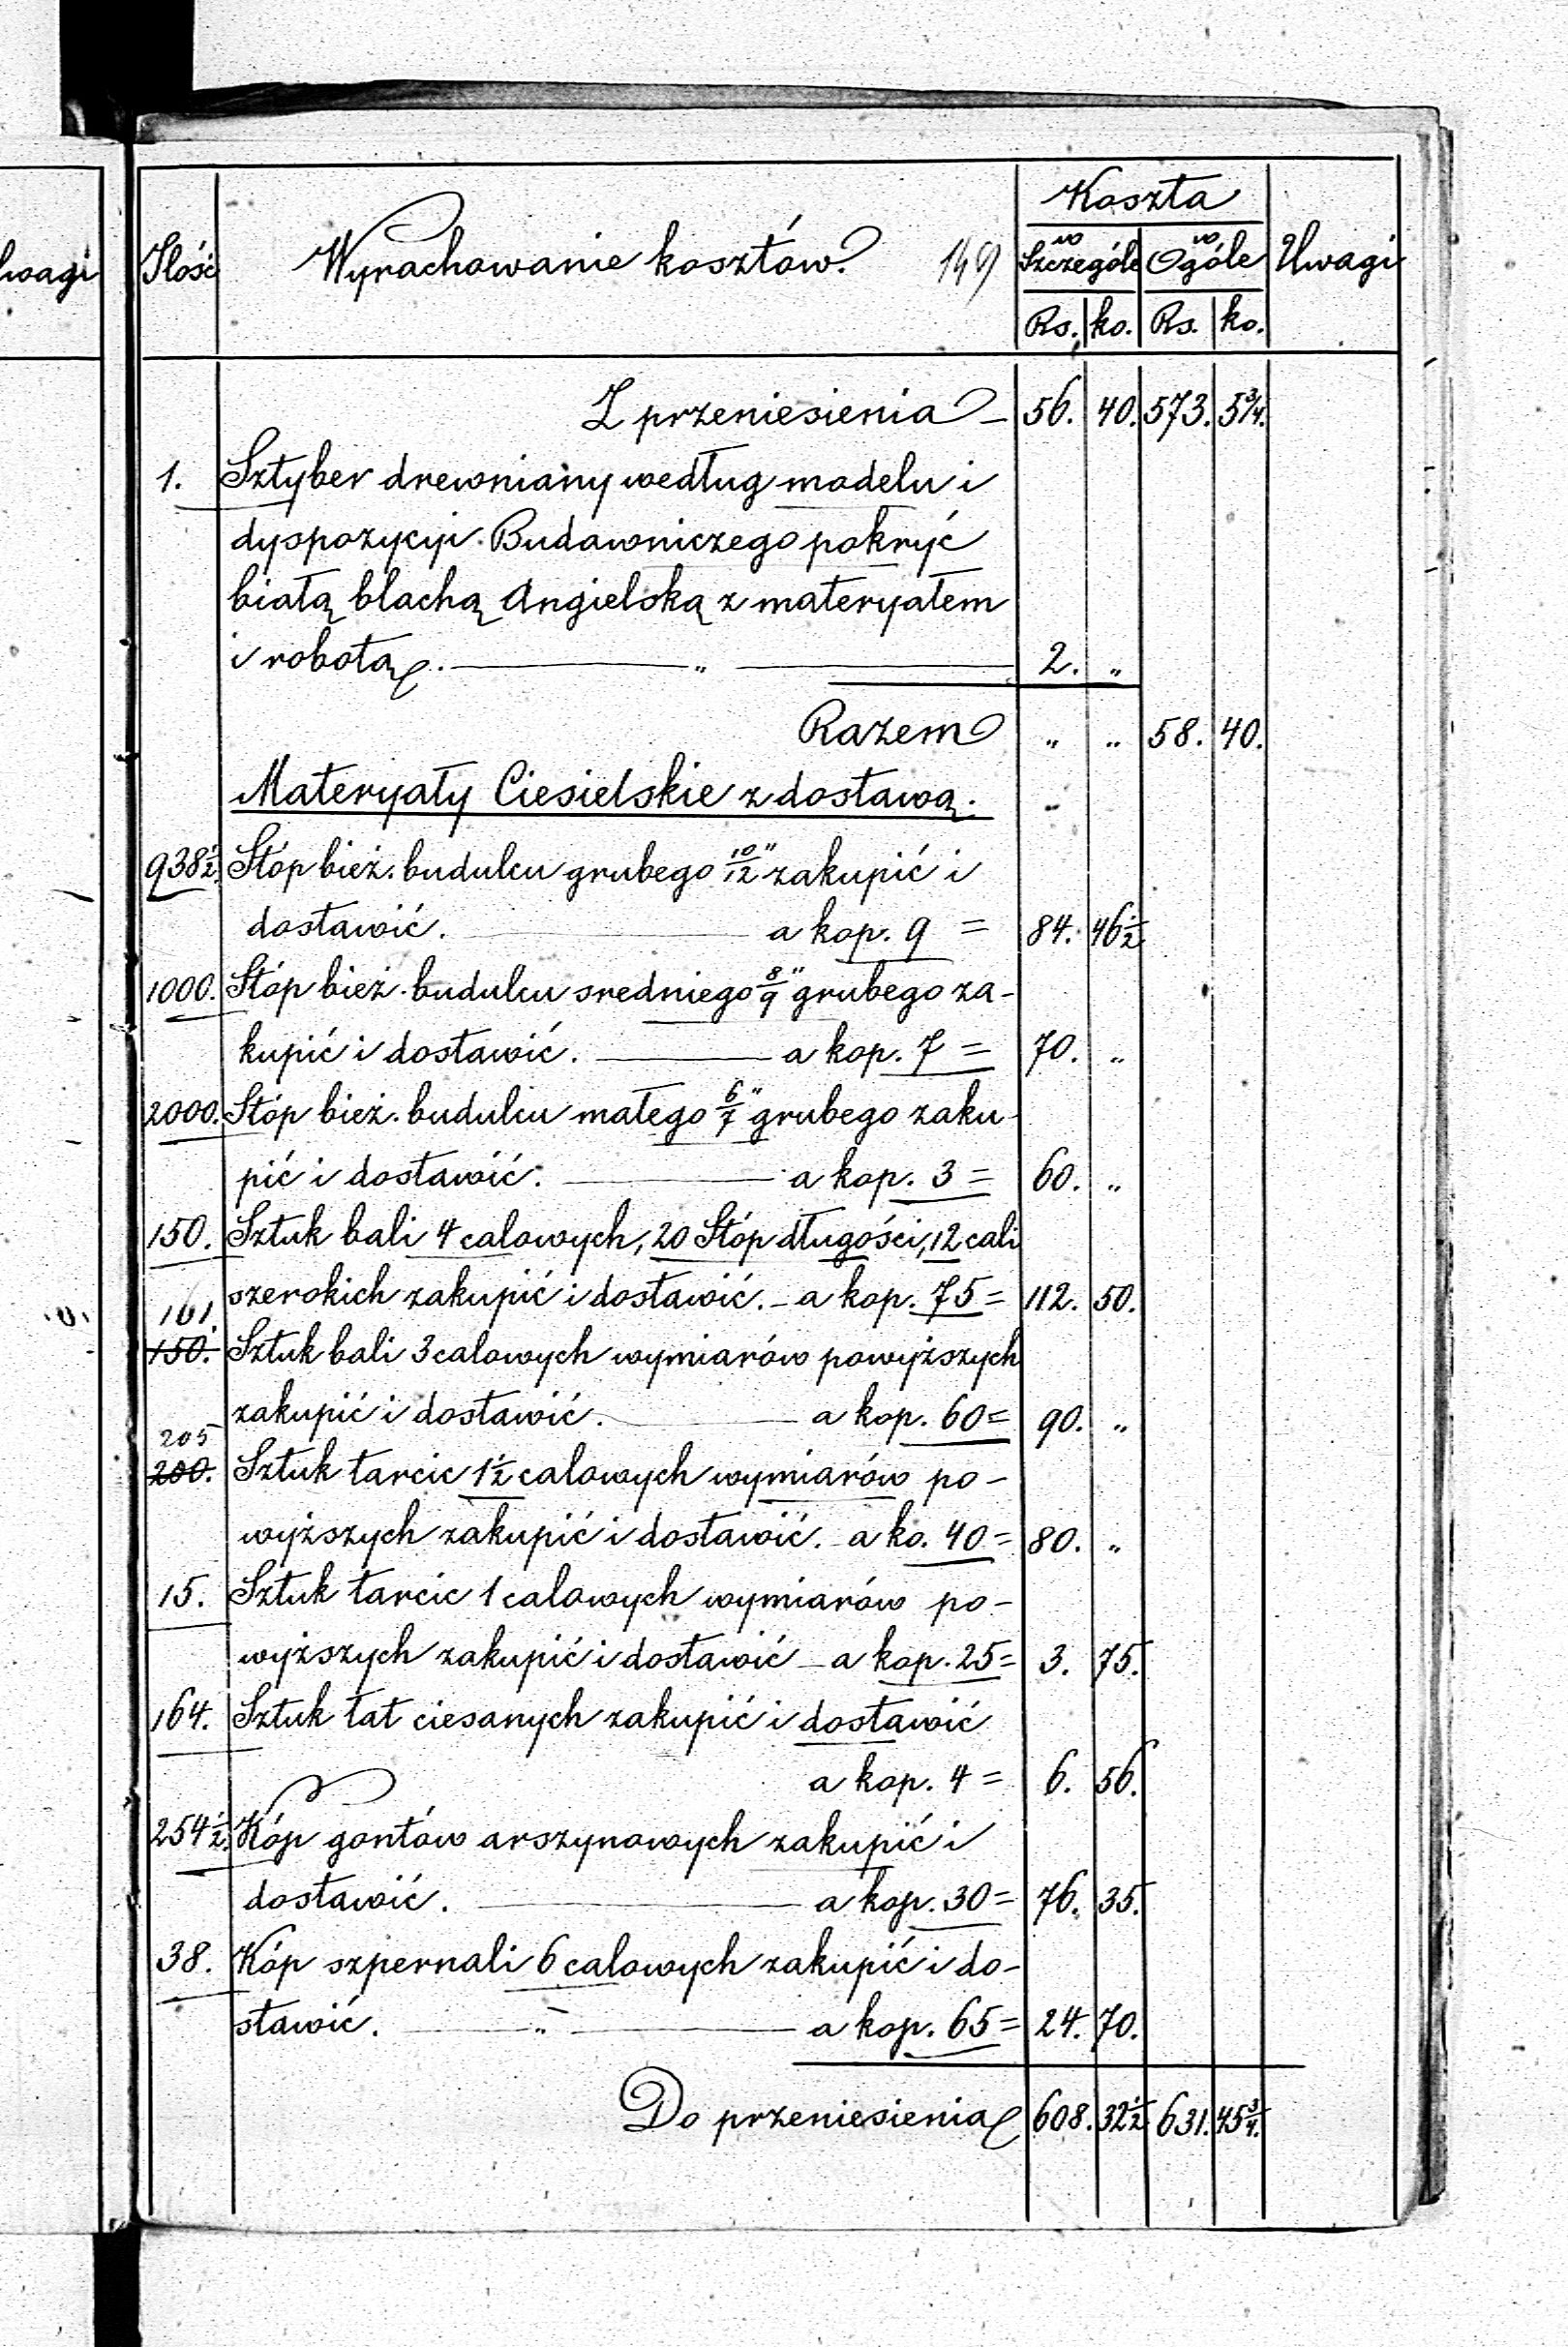 wagi
Koszta
Ilość Wyrachowanie kosztów. 149 w Szczególe w Ogóle Uwagi
Rs. ko. Rs. ko.
Z przeniesienia – 56. 40. 573. 5¾.
1. Sztyber drewniany według modelu i
dyspozycyi Budowniczego pokryć
białą blachą Angielską z materyałem
i robotą. — „ — 2. „
Razem „ „ 58. 40.
Materyały Ciesielskie z dostawą.
938½. Stóp bież. budulcu grubego 10/12" zakupić i
dostawić. — a kop. 9 = 84. 46½
1000. Stóp bież. budulcu sredniego 8/9" grubego za-
kupić i dostawić. — a kop. 7 = 70. „
2000. Stóp bież. budulcu małego 6/7" grubego zaku-
pić i dostawić. — a kop. 3 = 60. „
150. Sztuk bali 4 calowych, 20 Stóp długości, 12 cali
szerokich zakupić i dostawić. – a kop. 75 = 112. 50.
161.
150. Sztuk bali 3 calowych wymiarów powyższych
zakupić i dostawić. — a kop. 60 = 90. „
205
200. Sztuk tarcic 1½ calowych wymiarów po-
wyższych zakupić i dostawić. – a ko. 40 = 80. „
15. Sztuk tarcic 1 calowych wymiarów po-
wyższych zakupić i dostawić – a kop. 25 = 3. 75.
164. Sztuk łat ciesanych zakupić i dostawić
a kop. 4 = 6. 56.
254½. Kóp gontów arszynowych zakupić i
dostawić. — a kop. 30 = 76. 35.
38. Kóp szpernali 6 calowych zakupić i do-
stawić. — „ — a kop. 65 = 24. 70.
Do przeniesienia 608. 32½ 631. 45¾.